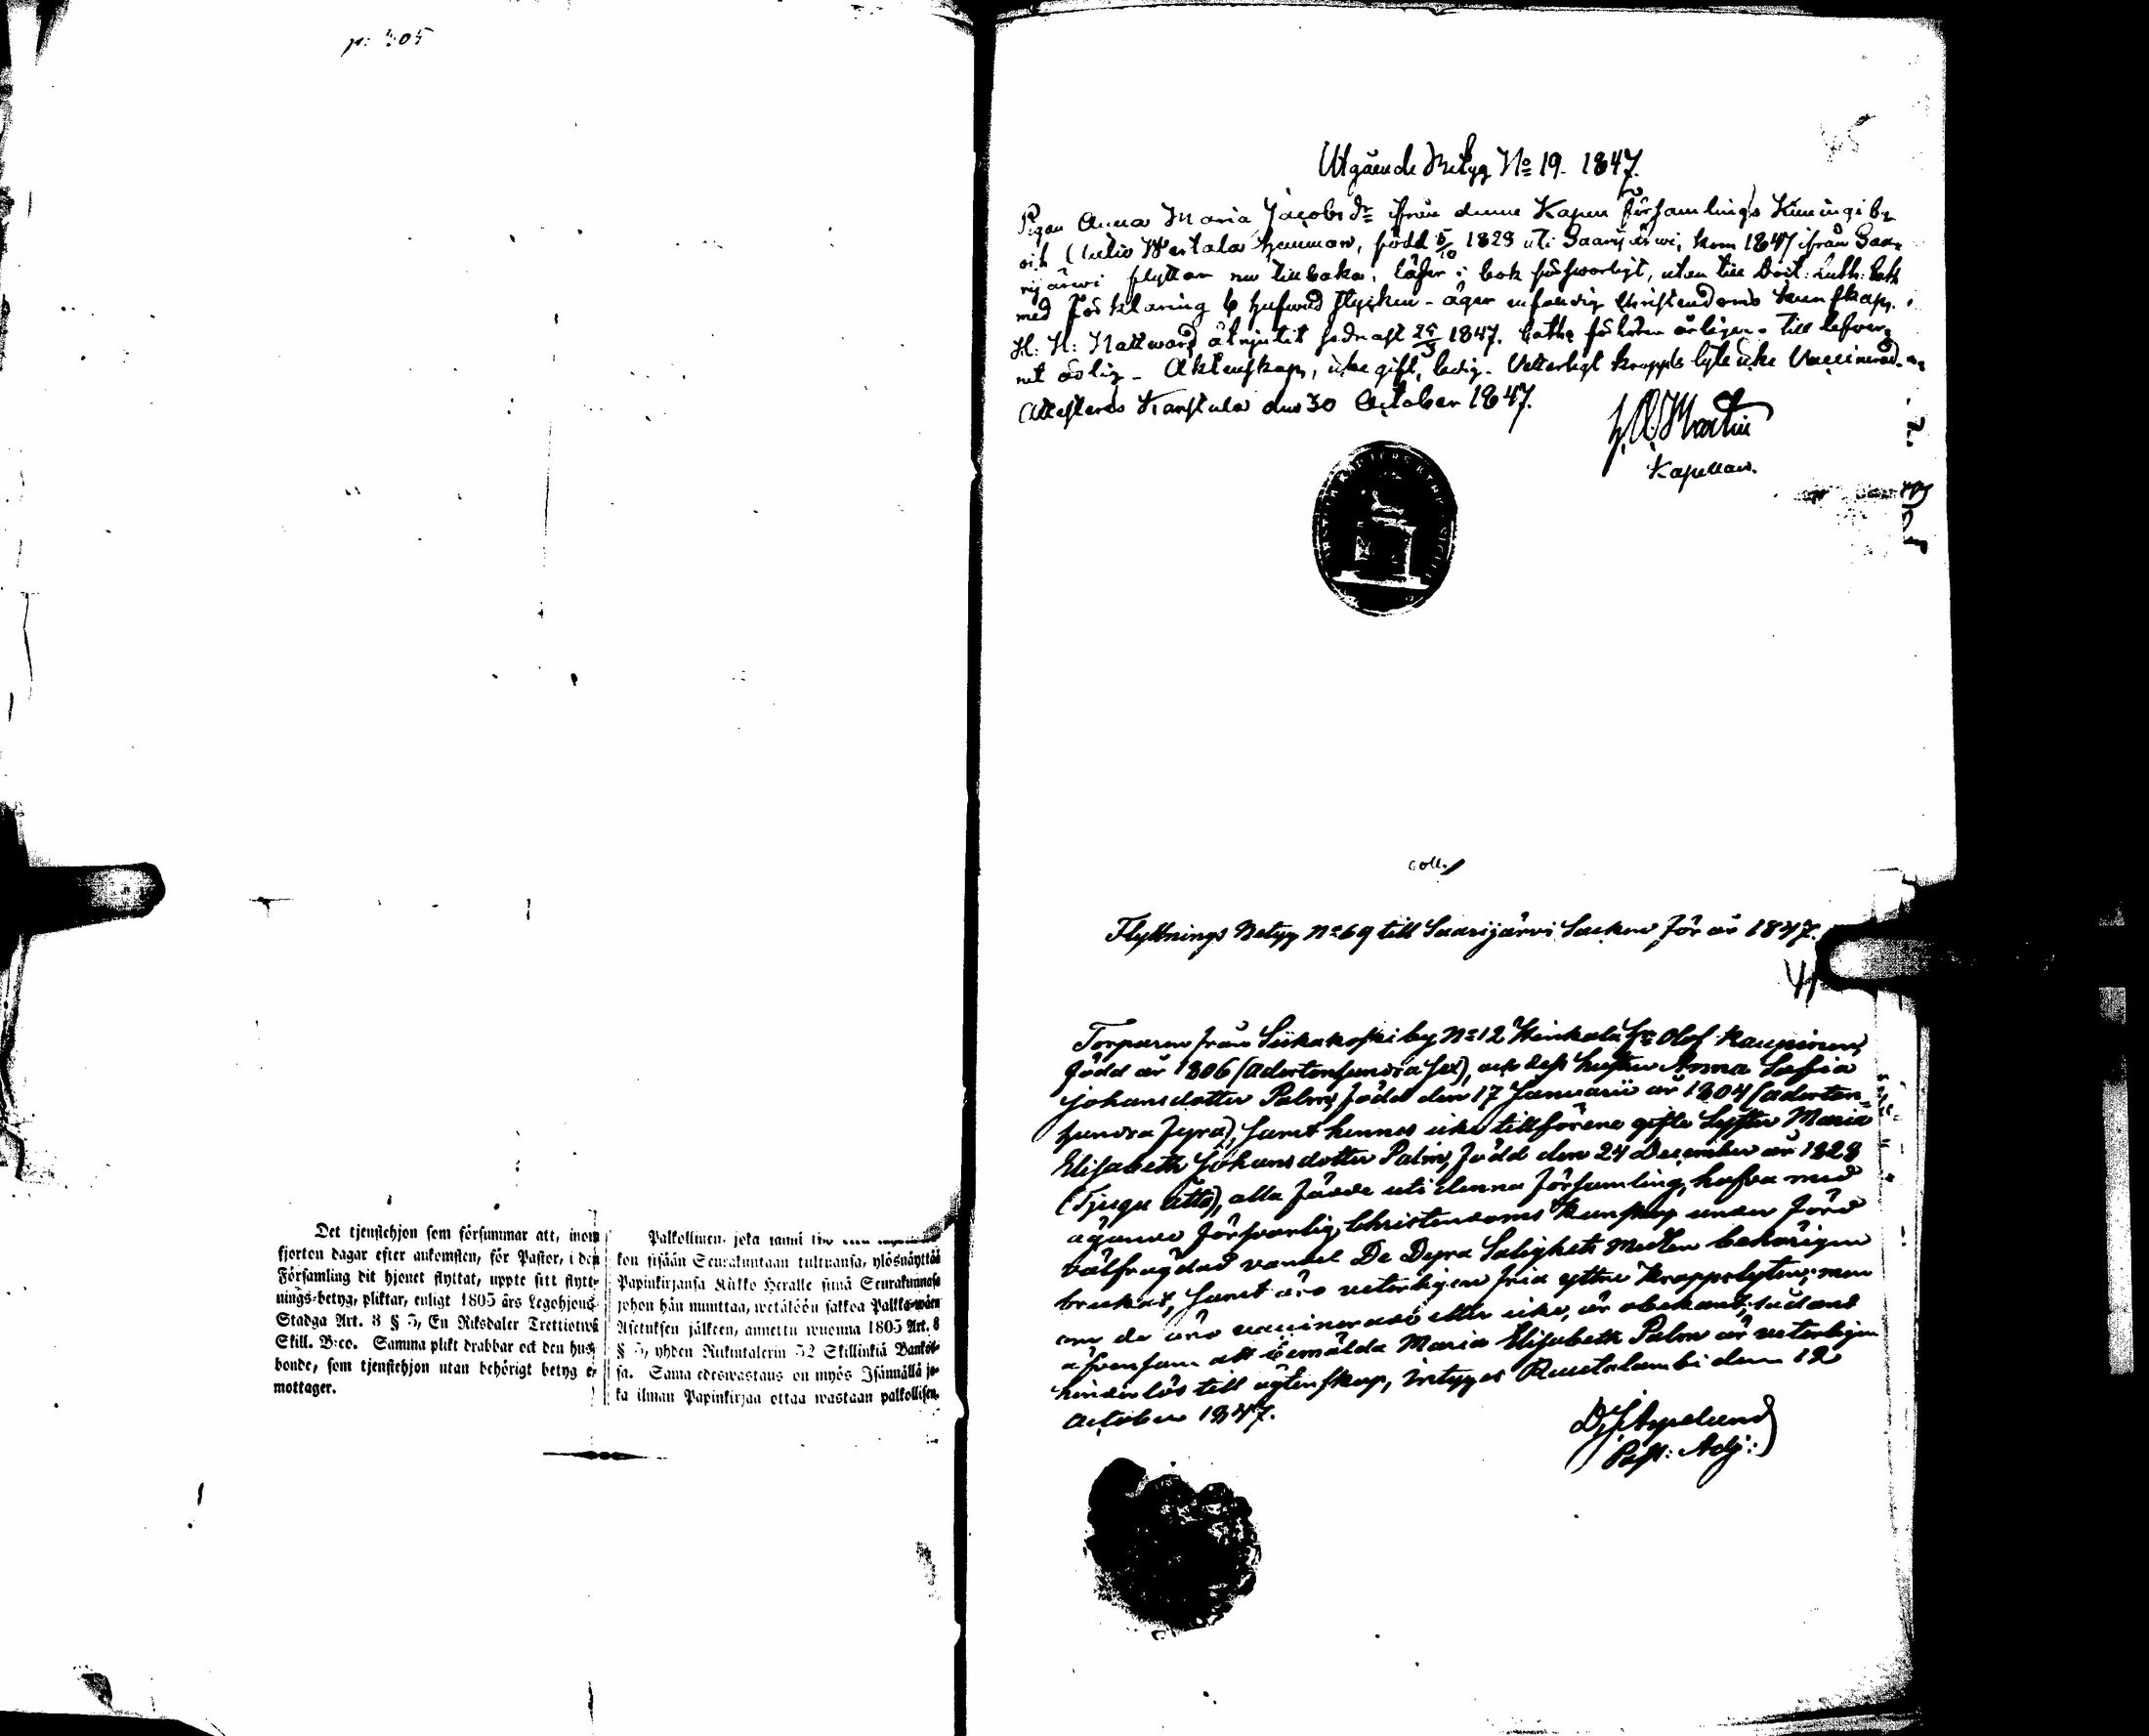 p: 405
Det tjenstehjon som försummar att, inom
fjorton dagar efter ankomsten, för Pastor, i den
Församling dit hjonet flyttat, uppte sitt flytt-
nings-betyg, pliktar, enligt 1805 års Legohjons
Stadga Art. 8 § 5, En Riksdaler Trettiotwå
Skill. B:co. Samma plikt drabbar ock den hus-
bonde, som tjenstehjon utan behörigt betyg e-
mottager.
Palkollinen, joka
kon sisään Seurakuntaan tultuansa, ylösnäyttää
Papinkirjansa Kirkko Herralle siinä Seurakunnasa
johon hän muuttaa, wetäköön sakkoa Palkka-wäen
Asetuksen jälkeen, annettu wuonna 1805 Art. 8
§ 5, yhden Riikintalerin 32 Skillinkiä Bankos-
sa. Sama edeswastaus on myös Isännällä jo-
ka ilman Papinkirjaa ottaa wastaan palkollisen.
Utgående Betyg No 19. 1847.
Pigan Anna Maria Jacobsdr ifrån denne Kapell församlings Kimingi by
och Westala hemman, född 5/10 1829 uti Saarijärwi, kom 1847 ifrån Saa-
rijärwi flyttar nu tillbaka; läser i bok försvarligt, utan till Doct: Luth: Cat:
med Förklaring 6 hufwud stycken - äger enfaldig Christendoms kunskap.
H: H: Nattward åtnjutit sednast 25/3 1847. förhören årligen. Till lefwer-
net ärlig - Äktenskap, icke gift, ledig. Veterligt kropps lyte icke Vaccinerad.
Attesteras Karstula den 30 October 1847.
Martin
Kapellan.
coll.
Flyttnings Betyg No 69 till Saarijärvi Socken för år 1847.
Torparen från Siikakoski by No 12 Olof Kauppinen,
född år 1806 (adertonhundra sex), och dess hustru Anna Sofia
Johansdotter Palm, född den 17 Januarii år 1804 (aderton-
hundra fyra), samt hennes icke tillförene gifta Syster Maria
Elisabeth Johansdotter Palm, född den 24 December år 1828
(Tjugu åtta), alla födde uti denna församling, hafva med
ägande försvarlig Christendoms kunskap under förd
välfrägdad vandel De Dyra Salighets Medlen behörigen
brukat, samt äro veterligen fria yttre kroppslyten; men
om de äro vaccinerade eller icke, är obekant; sådant
äfvensom att bemälda Maria Elisabeth Palm är veterligen
hinderlös till ägtenskap, intygas Rautalambi den 12
October 1847.
Past: Adj: